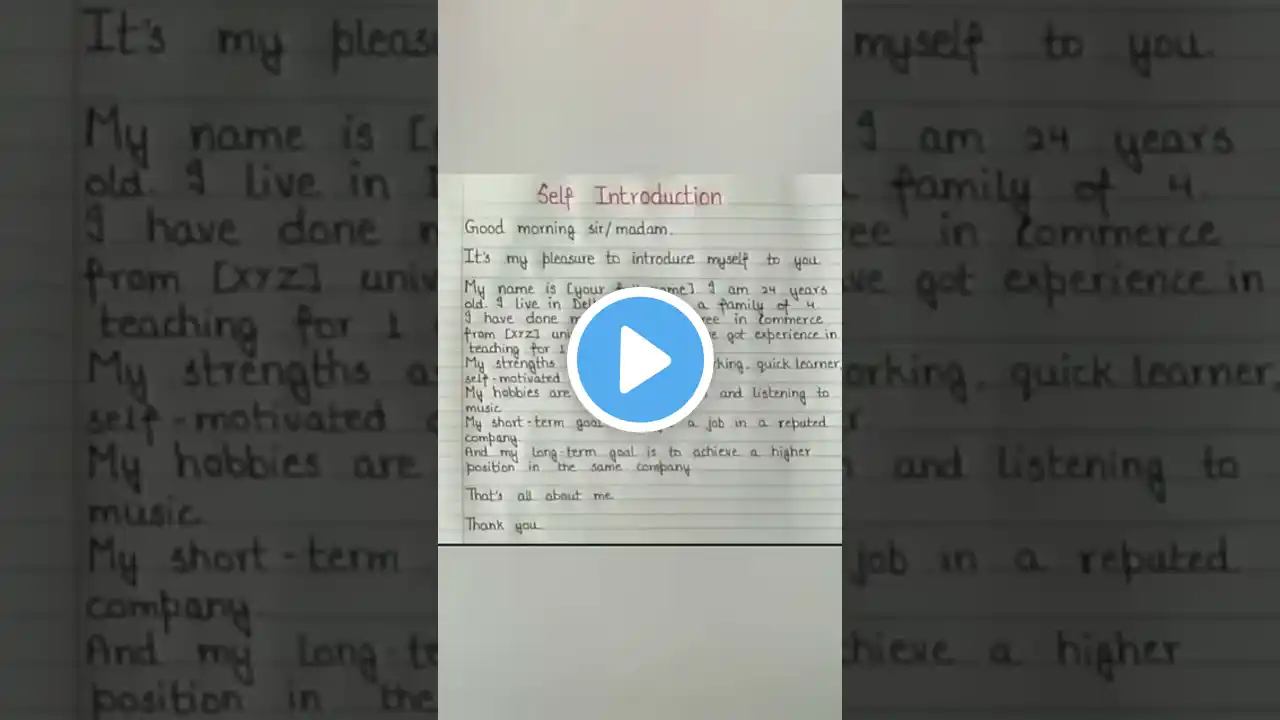 Self Introduction
Good morning sir/madam.
It's my pleasure to introduce myself to you.
My name is [your I am 24 years
old. I live in a family of 4.
I have done in Commerce
from [XYZ] got experience in
teaching for 1
My strengths quick learner,
self-motivated
My hobbies are and listening to
music.
My short-term a job in a reputed
company.
And my long-term goal is to achieve a higher
position in the same company.
That's all about me.
Thank you.